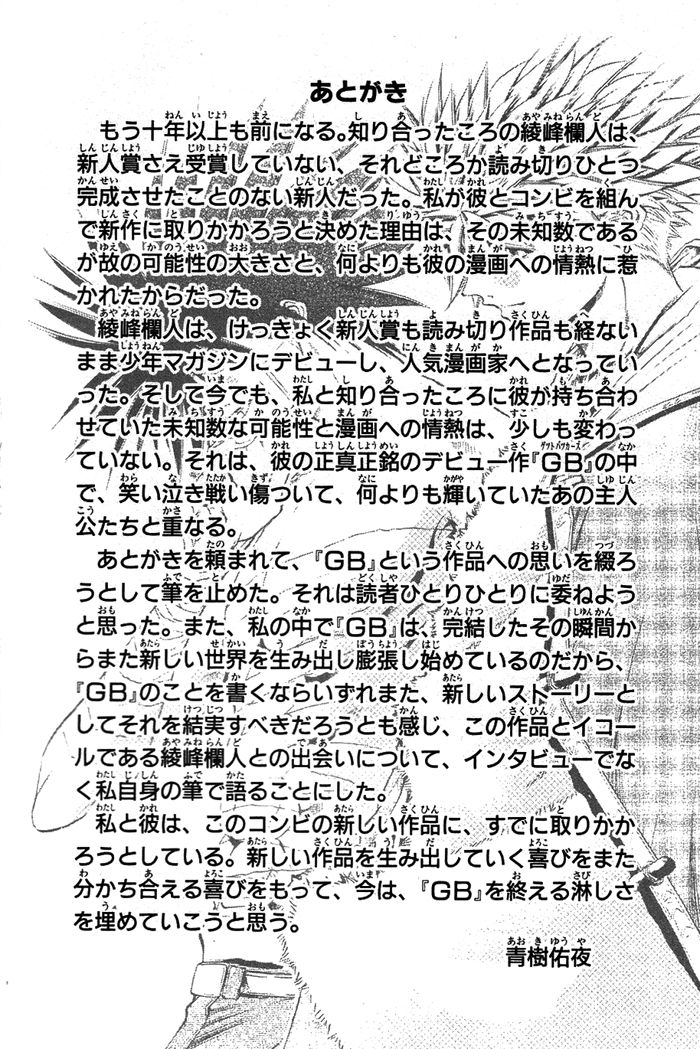 あとがき
もう十年以上も前になる。知り合ったころの綾峰欄人は、
新人賞さえ受賞していない、それどころか読み切りひとつ
完成させたことのない新人だった。私が彼とコンビを組ん
で新作に取りかかろうと決めた理由は、その未知数である
が故の可能性の大きさと、何よりも彼の漫画への情熱に惹
かれたからだった。
綾峰欄人は、けっきょく新人賞も読み切り作品も経ない
まま少年マガジンにデビューし、人気漫画家へとなってい
った。そして今でも、私と知り合ったころに彼が持ち合わ
せていた未知数な可能性と漫画への情熱は、少しも変わっ
ていない。それは、彼の正真正銘のデビュー作『GB』の中
で、笑い泣き戦い傷ついて、何よりも輝いていたあの主人
公たちと重なる。
あとがきを頼まれて、『GB』という作品への思いを綴ろ
うとして筆を止めた。それは読者ひとりひとりに委ねよう
と思った。また、私の中で『GB』は、完結したその瞬間か
らまた新しい世界を生み出し膨張し始めているのだから、
『GB』のことを書くならいずれまた、新しいストーリーと
してそれを結実すべきだろうとも感じ、この作品とイコー
ルである綾峰欄人との出会いについて、インタビューでな
く私自身の筆で語ることにした。
私と彼は、このコンビの新しい作品に、すでに取りかか
ろうとしている。新しい作品を生み出していく喜びをまた
分かち合える喜びをもって、今は、『GB』を終える淋しさ
を埋めていこうと思う。
青樹佑夜